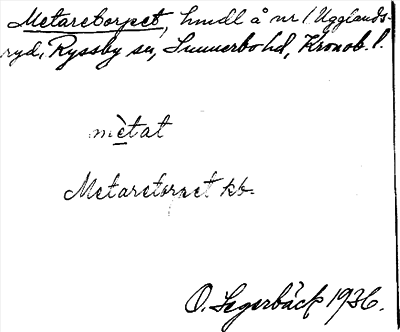 Metaretorpet, hmdl å nr 1 Ugglands-
ryd, Ryssby sn, Sunnerbo hd, Kronob. l.
mètat
Metaretorpet kb.
O. Segerbäck 1936.